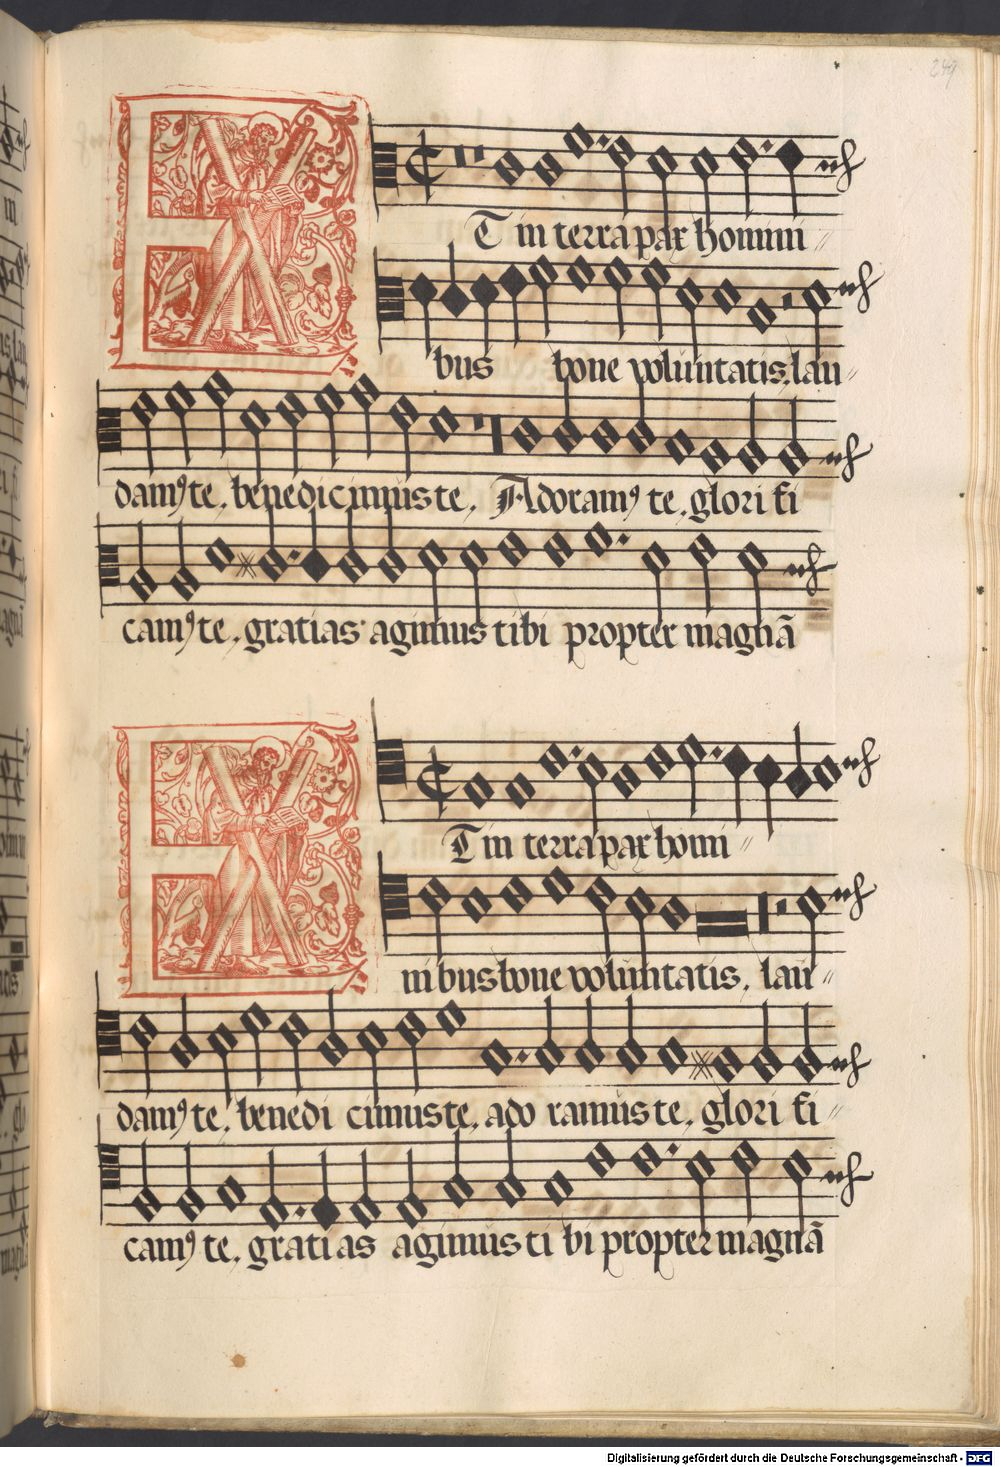 249
ET in terra pax homini
bus bone voluntatis. lau
damꝰ te, benedicimus te, Adoramꝰ te, glori fi
camꝰ te, gratias agimus tibi propter magnã
ET in terra pax homi
nibus bone voluntatis, lau
damꝰ te, benedi cimus te, ado ramus te, glori fi
camꝰ te, gratias agimus ti bi propter magnã
Digitalisierung gefördert durch die Deutsche Forschungsgemeinschaft - DFG